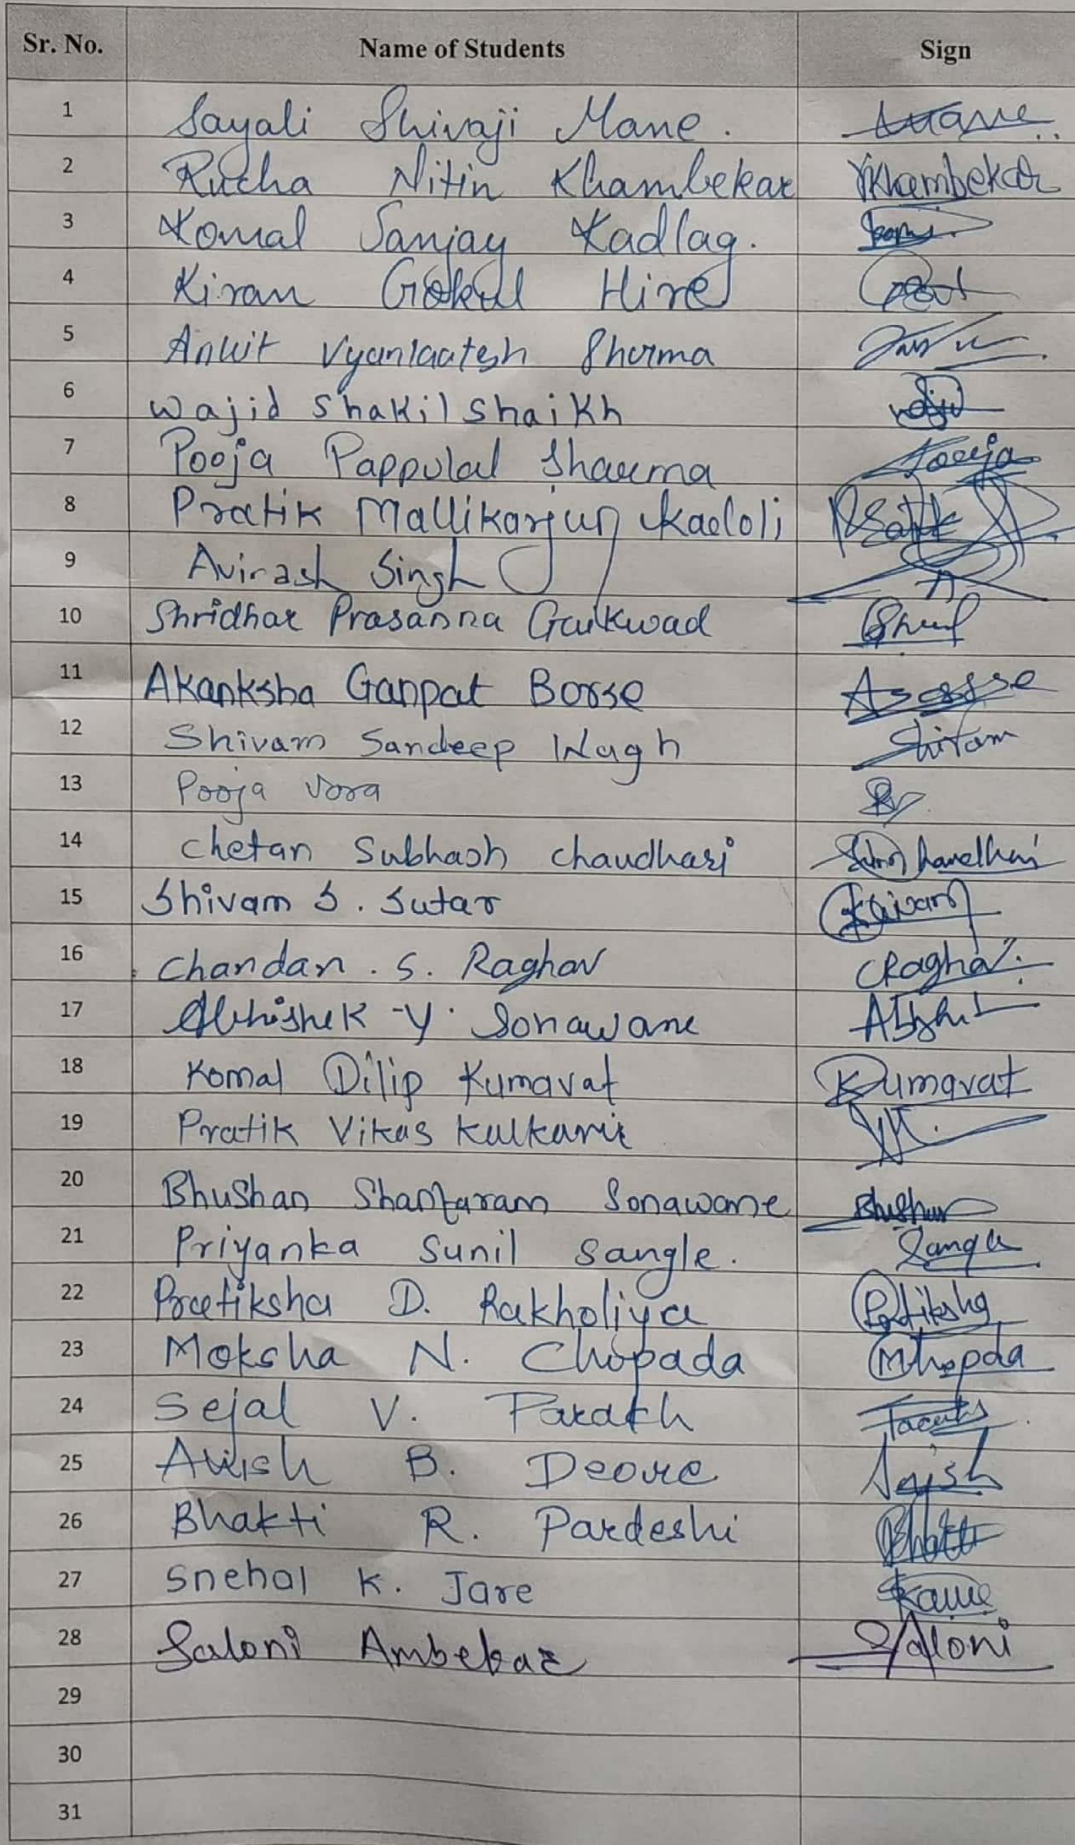 Sr. No. Name of Students Sign
1 Sayali Shivaji Mane. Mane
2 Rucha Nitin Khambekar Khambekar
3 Komal Sanjay Kadlag.
4 Kiran Gokul Hire
5 Ankit Vyanlaatesh Sharma
6 Wajid Shakil Shaikh
7 Pooja Pappulal Sharma Pooja
8 Pratik Mallikarjun Kadoli Pratik
9 Avinash Singh
10 Shridhar Prasanna Gaikwad
11 Akanksha Ganpat Borse
12 Shivam Sandeep Wagh Shivam
13 Pooja Vora
14 Chetan Subhash Chaudhari
15 Shivam S. Sutar Shivam
16 Chandan . S. Raghav CRaghav
17 Abhishek Y. Sonawane
18 Komal Dilip Kumavat Kumavat
19 Pratik Vikas Kulkarni
20 Bhushan Shantaram Sonawane Bhushan
21 Priyanka Sunil Sangle. Sangle
22 Pratiksha D. Rakholiya Pratiksha
23 Moksha N. Chopada
24 Sejal V. Parakh
25 B. Deore
26 Bhakti R. Pardeshi Bhakti
27 Snehal K. Jare
28 Saloni Ambekar Saloni
29
30
31